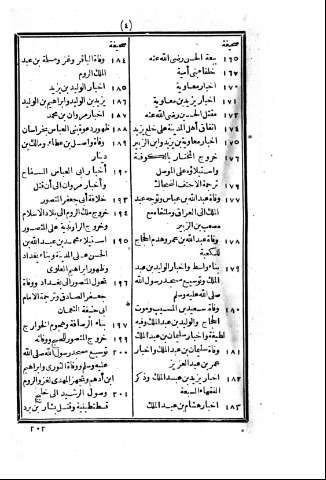 (٤)
صحيفة
١٦٥ بيعة الحسن رضى الله عنه
١٦٧ خلفاء بنى أمية
١٧١ اخبار معاوية
١٧١ اخبار يزيد بن معاوية
١٧٢ مقتل الحسين رضى الله عنه
١٧٤ اتفاق أهل المدينة على خلع يزيد
١٧٥ اخبار معاوية بن يزيد وابن الزبير
١٧٦ خروج المختار بالكوفة
واستيلاؤه على الموصل
ترجمة الاحنف الضحاك
١٧٧ وفاة ابن عباس وتوجه عبد
الملك الى العراق وملتقاه مع
مصعب بن الزبير
١٧٨ وفاة عبد الله بن عمر وهدم الحجاج
للكعبة
١٧٩ بناء واسط واخبار الوليد بن عبد
الملك وتوسيع مسجد رسول الله
صلى الله عليه وسلم
١٨٠ وفاة سعيد بن المسيب وموت
الحجاج والوليد بن عبد الملك وفيه
لطيفة واخبار سليمان بن عبد الملك
١٨١ وفاة سليمان بن عبد الملك واخبار
عمر بن عبد العزيز
١٨٢ اخبار يزيد بن عبد الملك وذكر
الفقهاء السبعة
١٨٣ اخبار هشام بن عبد الملك
صحيفة
١٨٤ وفاة الباقر وغزو مسلمة بن عبد
الملك الروم
١٨٥ اخبار الوليد بن يزيد
١٨٦ يزيد بن الوليد وابراهيم بن الوليد
١٨٧ اخبار مروان بن محمد
١٨٨ ظهور دعوة بنى العباس بخراسان
١٨٩ وفاة واصل بن عطاء ومالك بن
دينار
١٩٠ أخبار أبى العباس السفاح
وأخبار مروان الى أن قتل
١٩٣ خلافة أبى جعفر المنصور
١٩٤ خروج ملك الروم الى بلاد الاسلام
وخروج الراوندية على المنصور
١٩٥ استيلاء محمد بن عبد الله بن
الحسن على المدينة وبناء بغداد
وظهور ابراهيم العلوى
١٩٦ تحول المنصور الى بغداد ووفاة
جعفر الصادق وترجمة الامام
أبى حنيفة النعمان
١٩٧ بناء الرصافة وهجوم الخوارج
١٩٩ خروج المنصور للحج ووفاته
٢٠٠ توسيع مسجد رسول الله صلى الله
عليه وسلم ووفاة الثورى وابراهيم
ابن أدهم وتجهز المهدى لغزو الروم
٢٠١ وصول الرشيد الى خليج
قسطنطينية وقتل بشار بن برد
٢٠٢